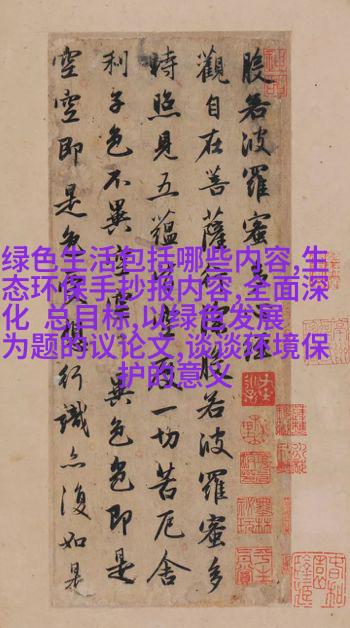 般若波羅蜜多心經
觀自在菩薩行深般若波羅蜜多
時照見五蘊皆空度一切苦厄舍
利子色不異空空不異色色即是
空空即是色受想行識亦復如是
绿色生活包括哪些内容,生
态环保手抄报内容,全面深
化 总目标,以绿色发展
为题的议论文,谈谈环境保
护的意义